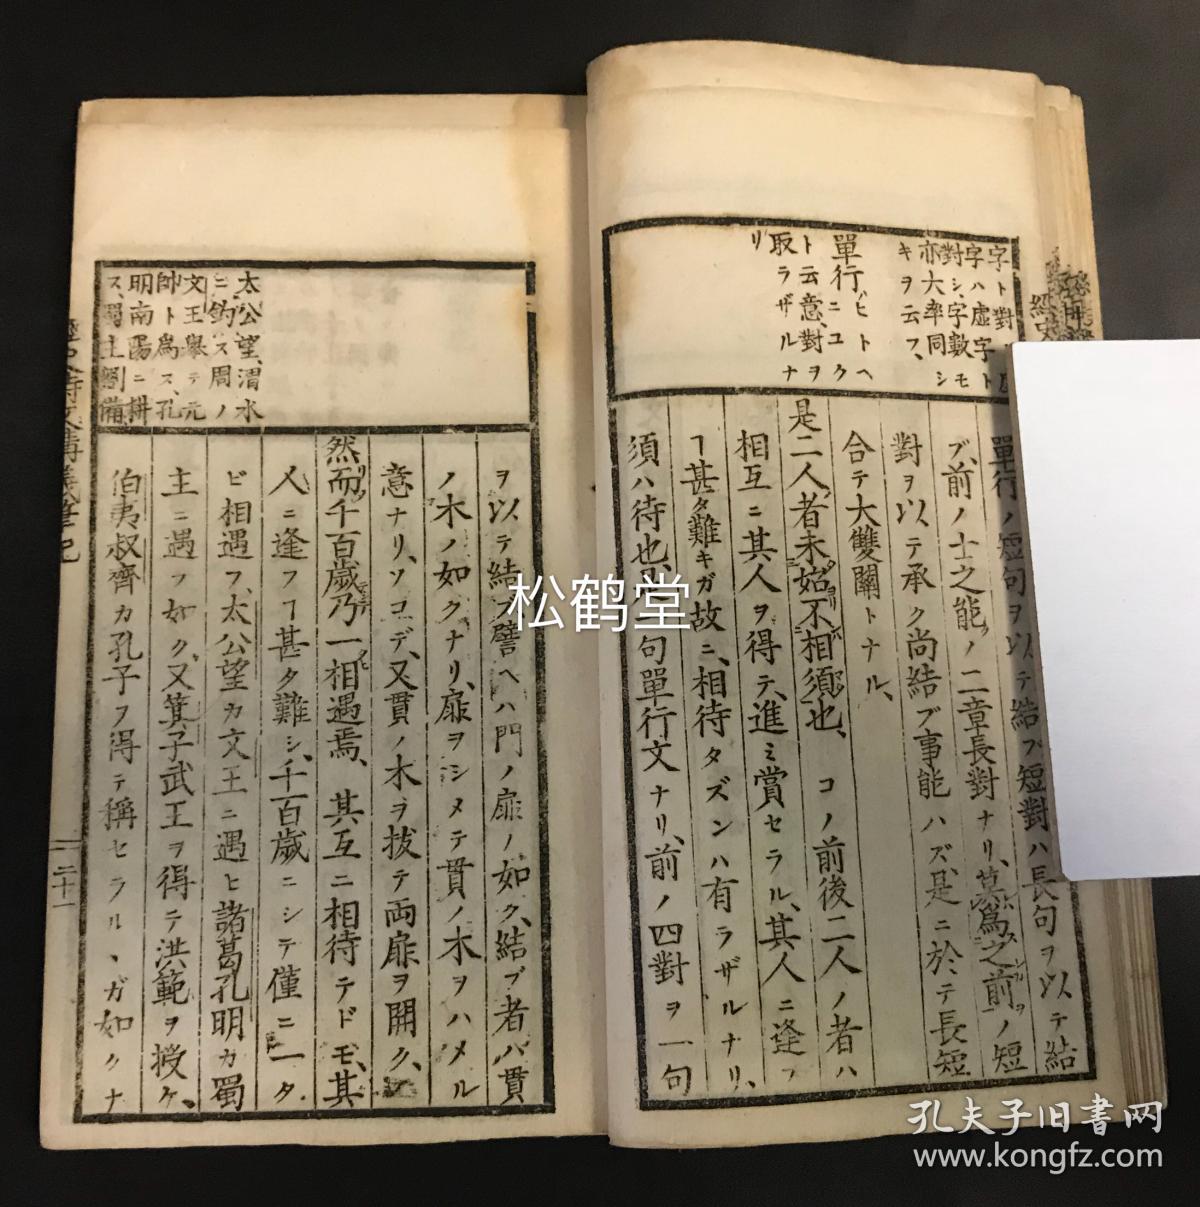 字ト對シ
字ハ虛字ト
對シ、字數モ
亦大率同シ
キヲ云フ、
單行ヒトヘ
ニユク
ト云意、對ヲ
取ラザルナ
リ
單行ノ短句ヲ以テ結ブ短對ハ長句ヲ以テ結
ブ、前ノ士之能ノ二章長對ナリ、莫爲之前ノ短
對ヲ以テ承ク尚結ブ事能ハズ、是ニ於テ長短
合テ大雙關トナル、
是二人者未始不相須也、コノ前後二人ノ者ハ
相互ニ其人ヲ得テ、進ミ賞セラル、其人ニ逢フ
ヿ甚タ難キガ故ニ、相待タズンハ有ラザルナリ、
須ハ待也、一句單行文ナリ、前ノ四對ヲ一句
太公望、渭水
ニ釣ス周ノ
文王擧テ元
帥ト爲ス、孔
明南陽ニ耕
ス、蜀主劉備
ヲ以テ結ブ譬ヘハ門ノ扉ノ如ク、結ブ者ハ貫
ノ木ノ如クナリ、扉ヲシメテ貫ノ木ヲハメル
意ナリ、ソコデ、又貫ノ木ヲ抜テ両扉ヲ開ク、
然而千百歳乃一相遇焉、其互ニ相待テドモ、其
人ニ逢フヿ甚タ難シ、千百歳ニシテ僅ニ一タ
ビ相遇フ、太公望カ文王ニ遇ヒ諸葛孔明カ蜀
主ニ遇フ如ク、又箕子武王ヲ得テ洪範ヲ授ケ、
伯夷叔齊カ孔子ヲ得テ稱セラル、ガ如クナ
二十一
松鹤堂
孔夫子旧书网
www.kongfz.com